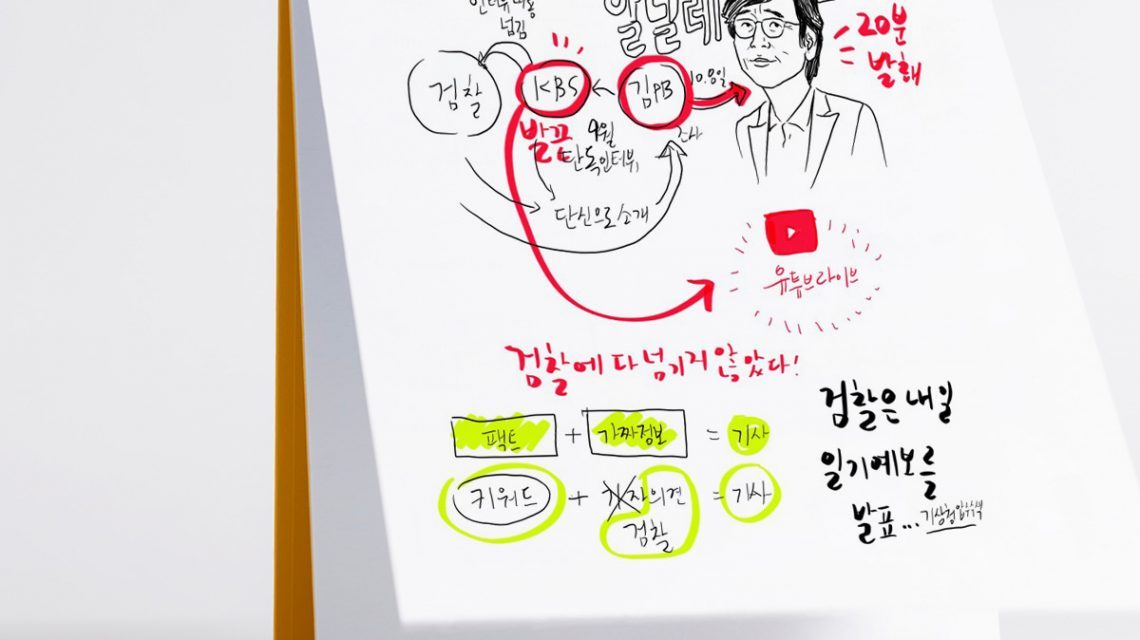 인터뷰내용
넘김
알릴레
20분
발췌
검찰
KBS
김PB
10.8일
발끈
9월
단독인터뷰
조사
단신으로소개
유튜브라이브
검찰에 다 넘기지 않았다!
팩트 + 가짜정보 = 기사
키워드 + 기자의견 = 기사
검찰
검찰은 내일
일기예보를
발표...기상청압수색